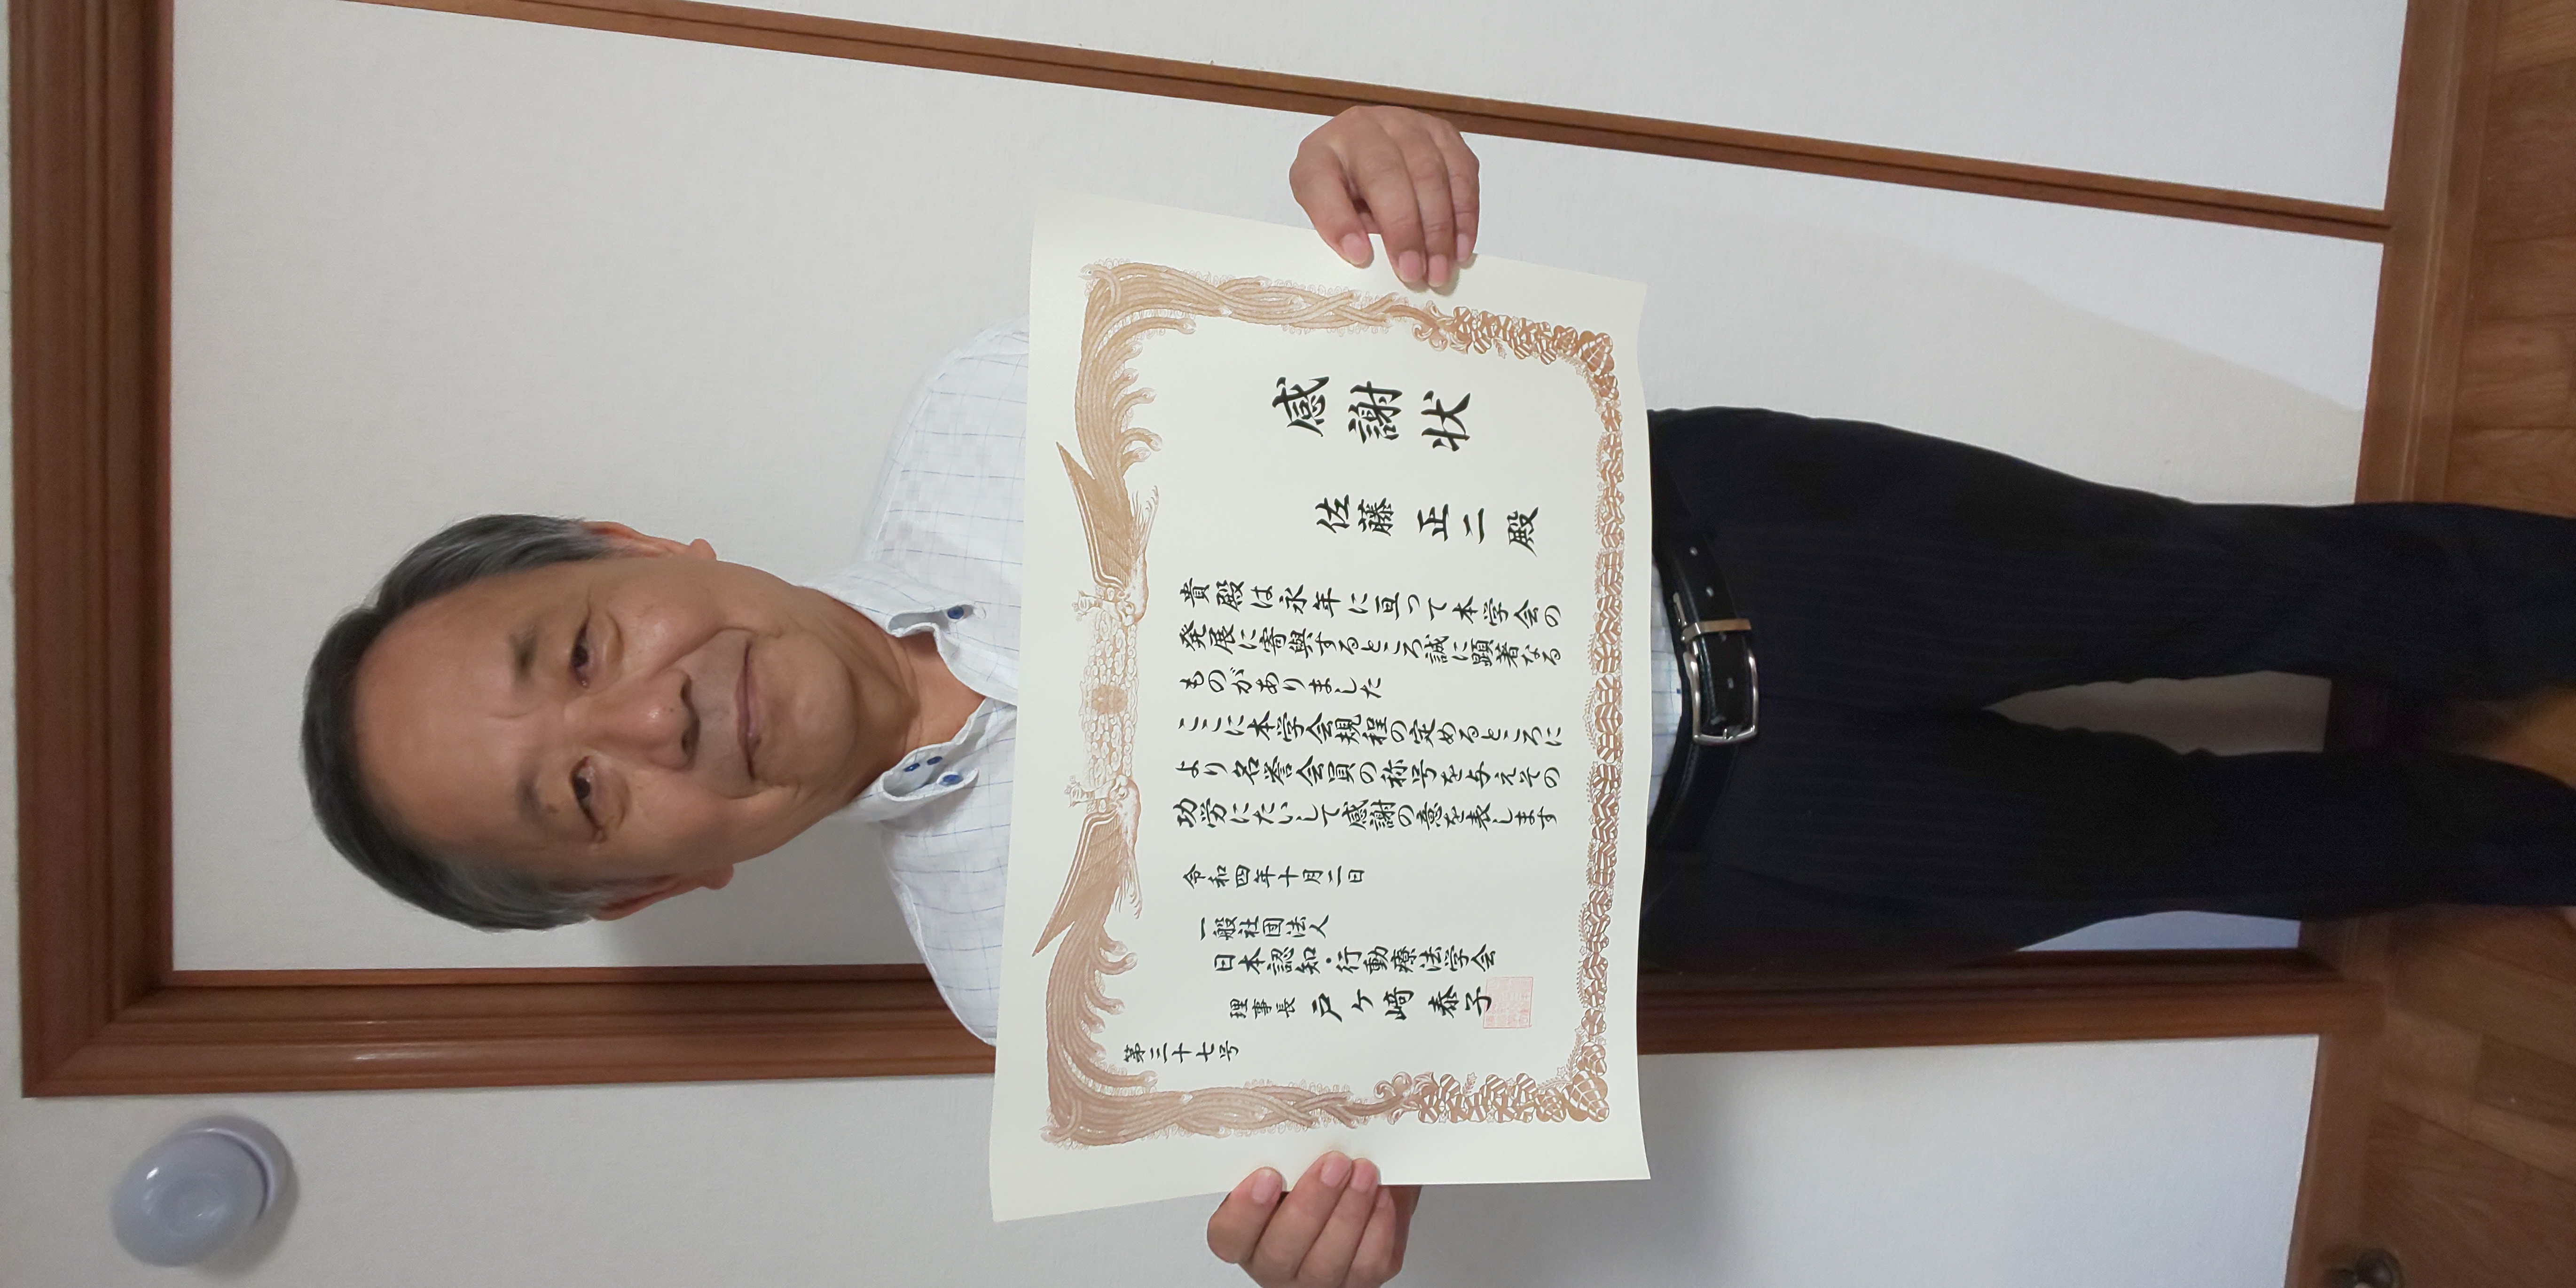 感謝状
佐藤正二殿
貴殿は永年に亘って本学会の
発展に寄與するところ誠に顕著なる
ものがありました
ここに本学会規程の定めるところに
より名誉会員の称号を与えその
功労にたいして感謝の意を表します
令和四年十月二日
一般社団法人
日本認知・行動療法学会
理事長 戸ケ﨑泰子
第三十七号